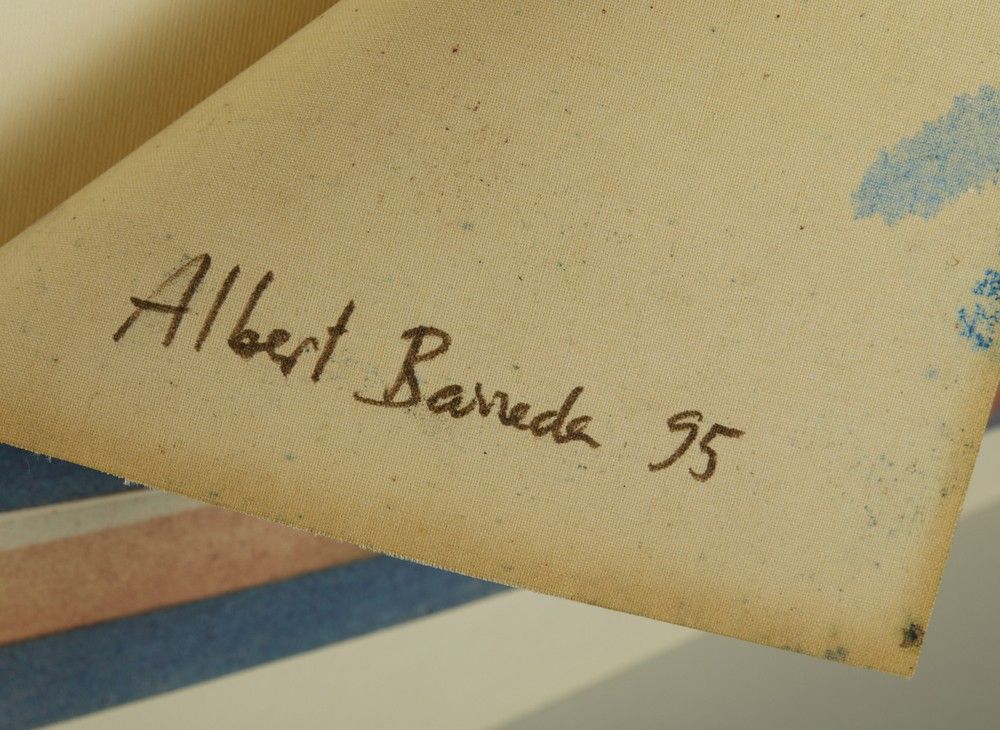 Albert Barreda 95